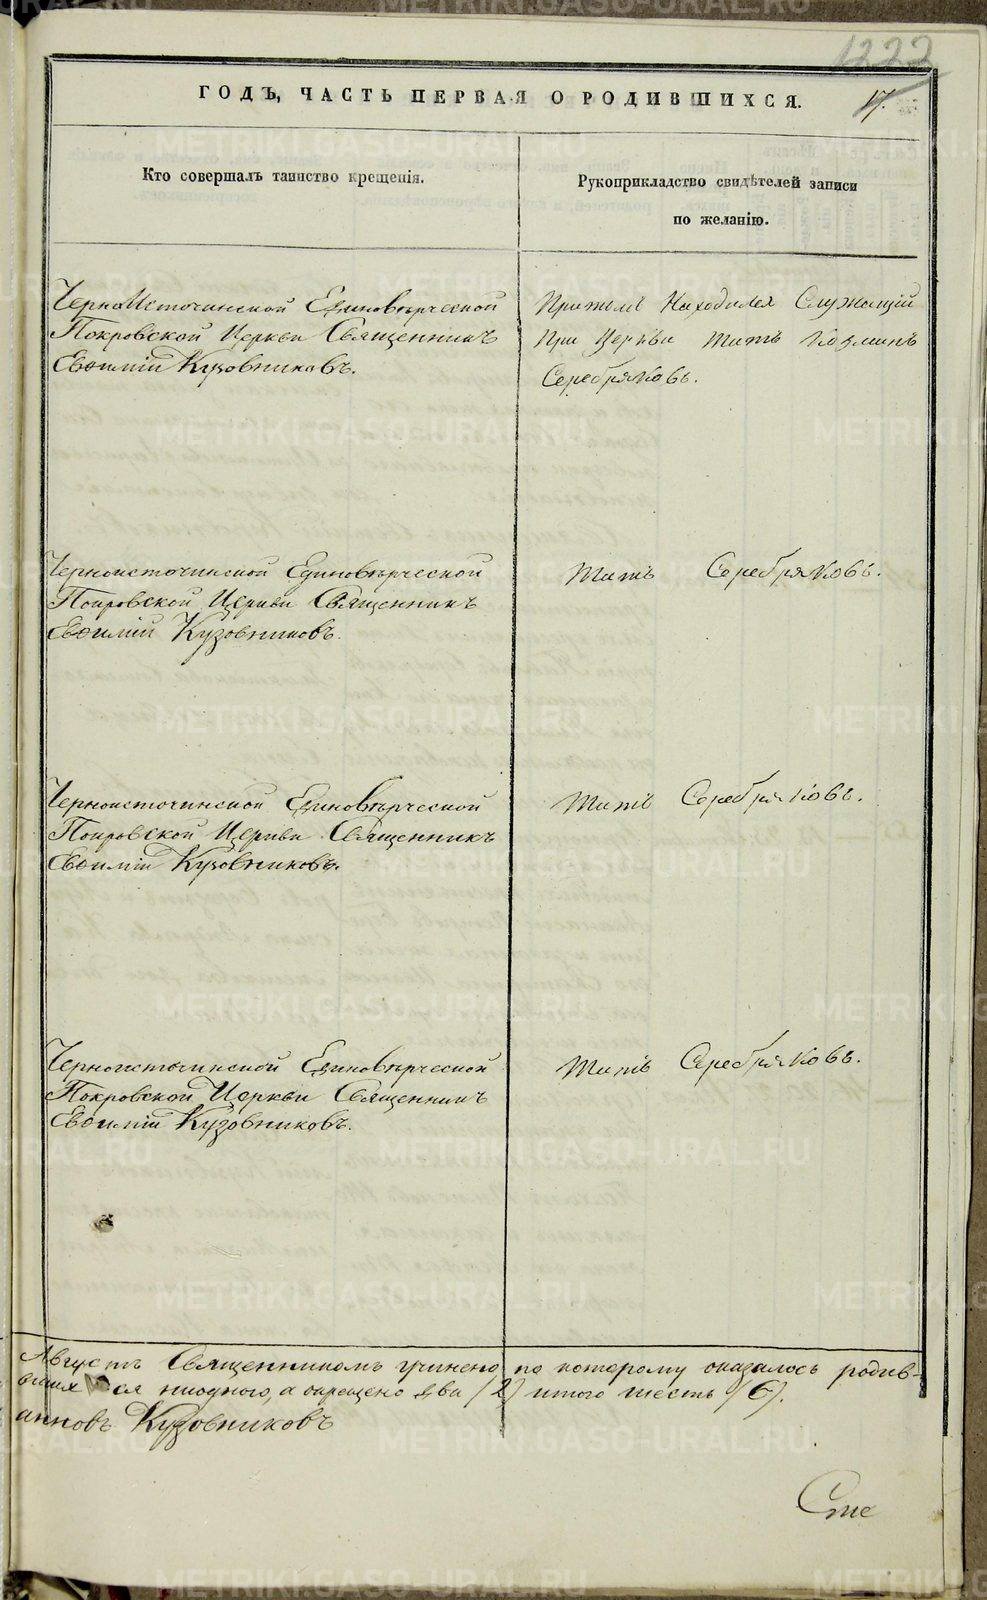 1222
ГОДЪ, ЧАСТЬ ПЕРВАЯ О РОДИВШИХСЯ.
17.
Кто совершалъ таинство крещенія.
Рукоприкладство свидѣтелей записи
по желанію.
ЧерноИсточинской Единовѣрческой
Покровской Церкви Священникъ
Евѳимій Кузовниковъ.
При семъ Находился Служащій
При Церкви Титъ Козминъ
Серебряковъ.
Черноисточинской Единовѣрческой
Покровской Церкви Священникъ
Евѳимій Кузовниковъ.
Титъ Серебряковъ.
Черноисточинской Единовѣрческой
Покровской Церкви Священникъ
Евѳимій Кузовниковъ.
Титъ Серебряковъ.
Черноисточинской Единовѣрческой
Покровской Церкви Священникъ
Евѳимій Кузовниковъ.
Титъ Серебряковъ.
Августъ Священникомъ учинено по которому оказалось родив-
шихся ниодного, а окрещено два (2) итого шесть (6).
Кузовниковъ
METRIKI.GASO-URAL.RU